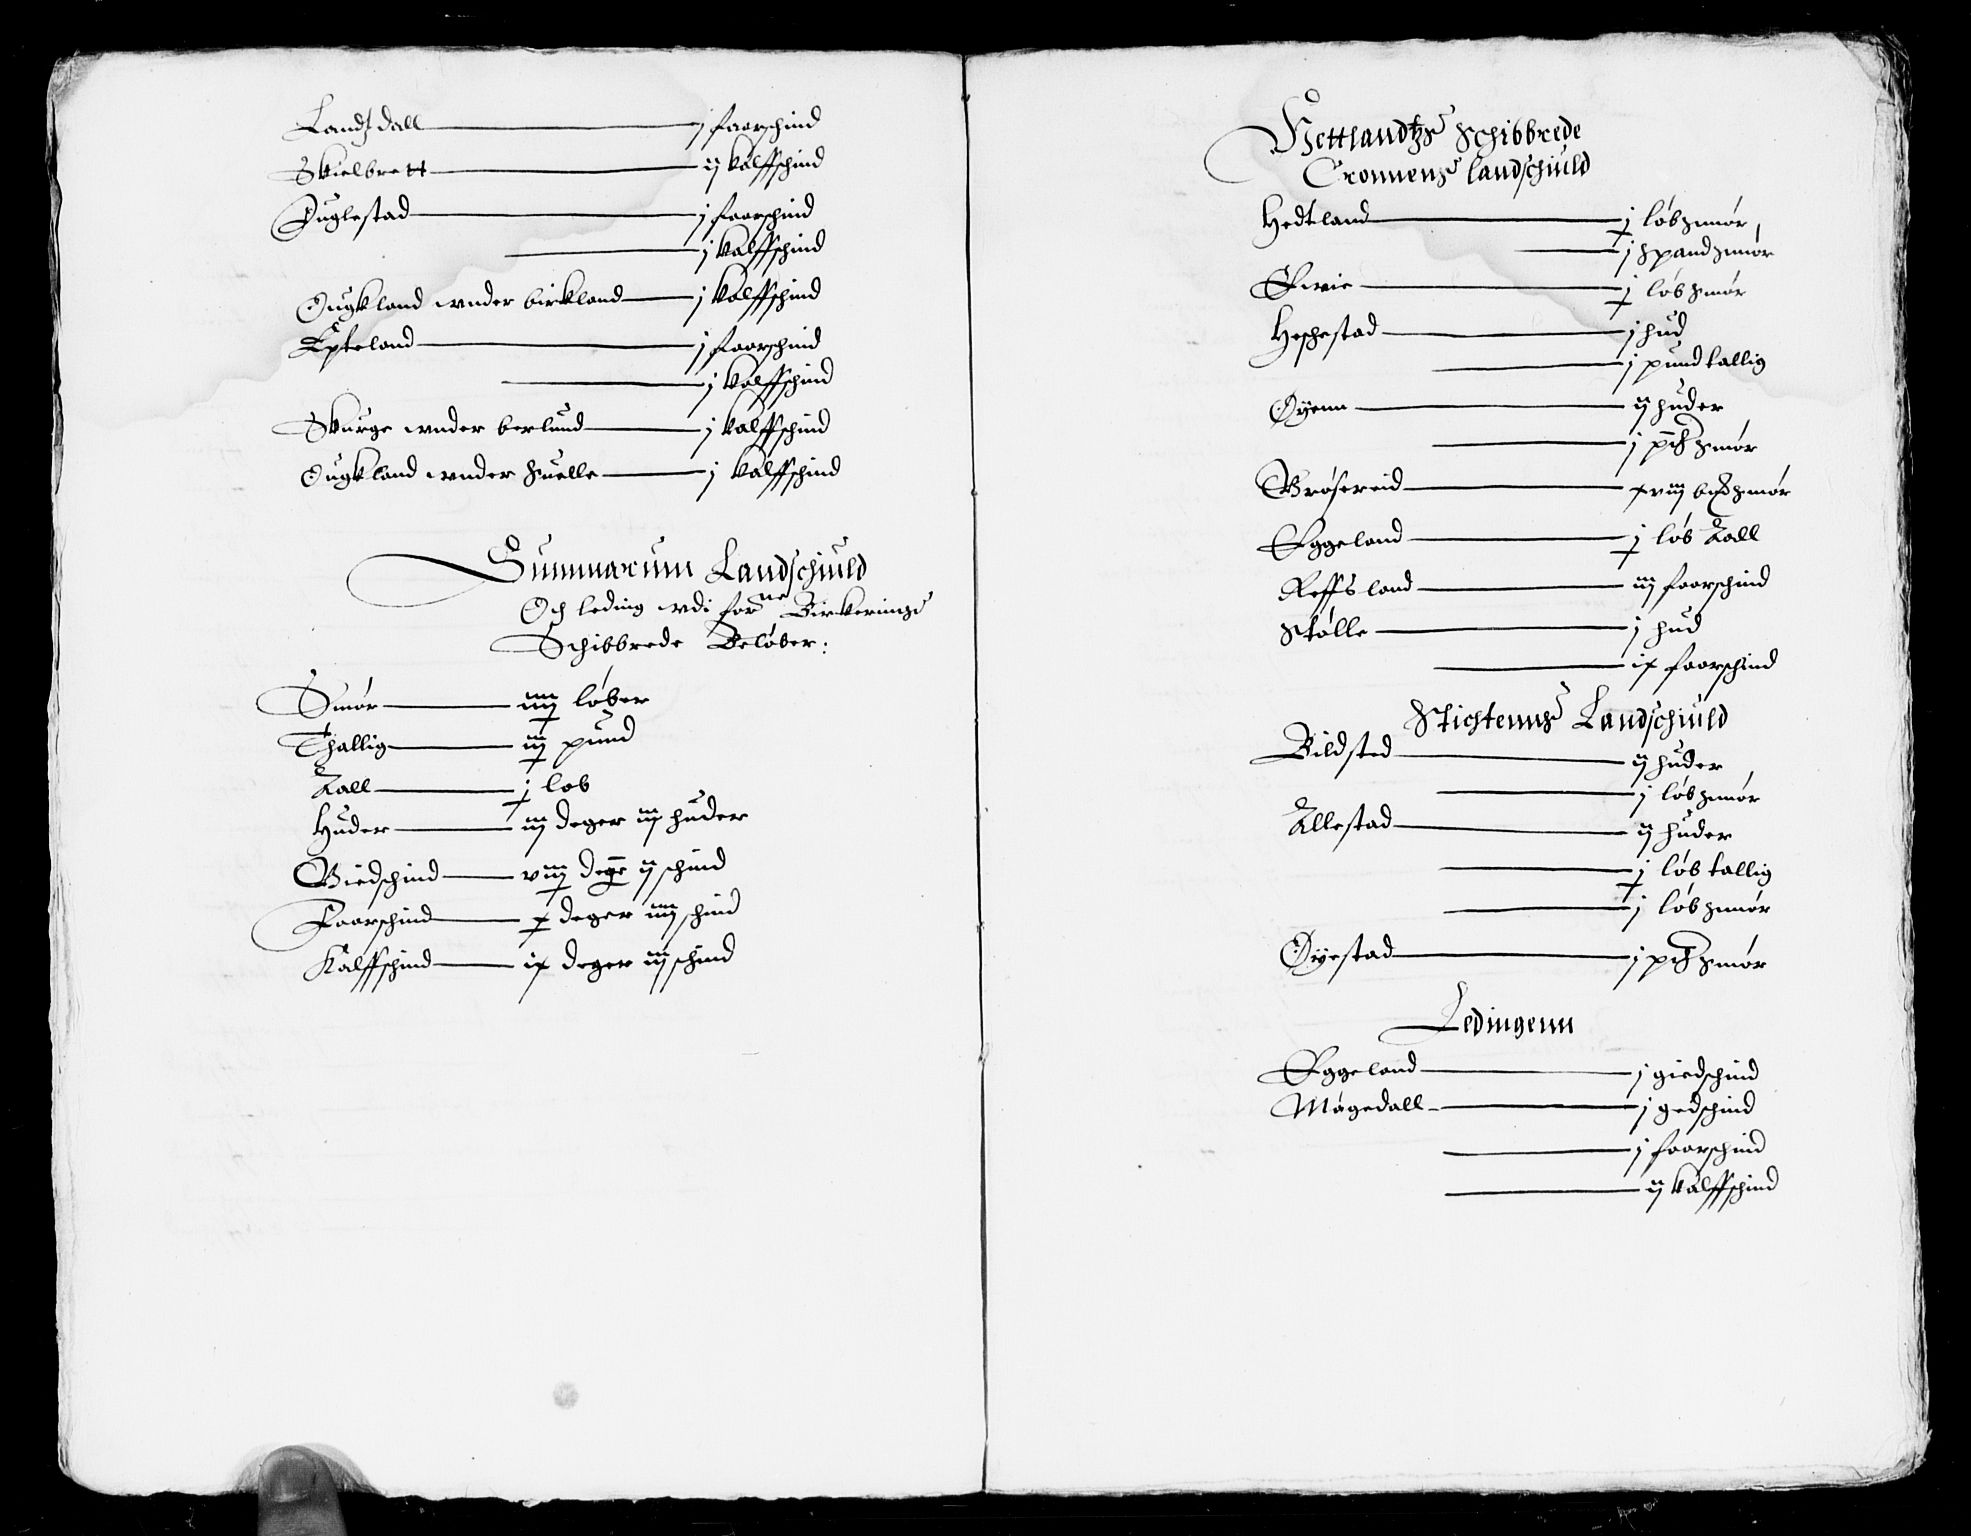 Landtzdall — j faarschind
Skielbrett — ij kalffschind
Duglestad — j faarschind
— j kalffschind
Ougkland wnder birkland — j kalffschind
Epteland — j faarschind
— j kalffschind
Skurge wnder berlund — j kalffschind
Ougkland wnder fuelle — j kalffschind
Summarum Landschiuld
Och leding wdi forne Birkerings
Schibbrede Beløber:
Smør — iiij løber
Thallig — iij pund
Kall — j løb
Huder — iij deger iij huder
Giedschind — viij deger ij schind
Faarschind — x deger iiij schind
Kalffschind — ix deger iij schind
Hettlandtzs Schibbrede
Cronnens landschiuld
Hedtland — j løb smør,
— j spand smør
Eiwie — j løb smør
Heshestad — j hud
— j pund tallig
Øyenn — ij huder
— j pd smør
Brøsereid — xviij bd smør
Eggeland — j løb Kall
Reffsland — iij faarschind
Stølle — j hud
— ix faarschind
Stichtenns Landschiuld
Bildsted — ij huder
— j løb smør
Allestad — ij huder
— j løb tallig
— j løb smør
Øyestad — j pd smør
Ledingenn
Eggeland — j giedschind
Møgedall — j gedschind
— j faarschind
— ij kalffschind